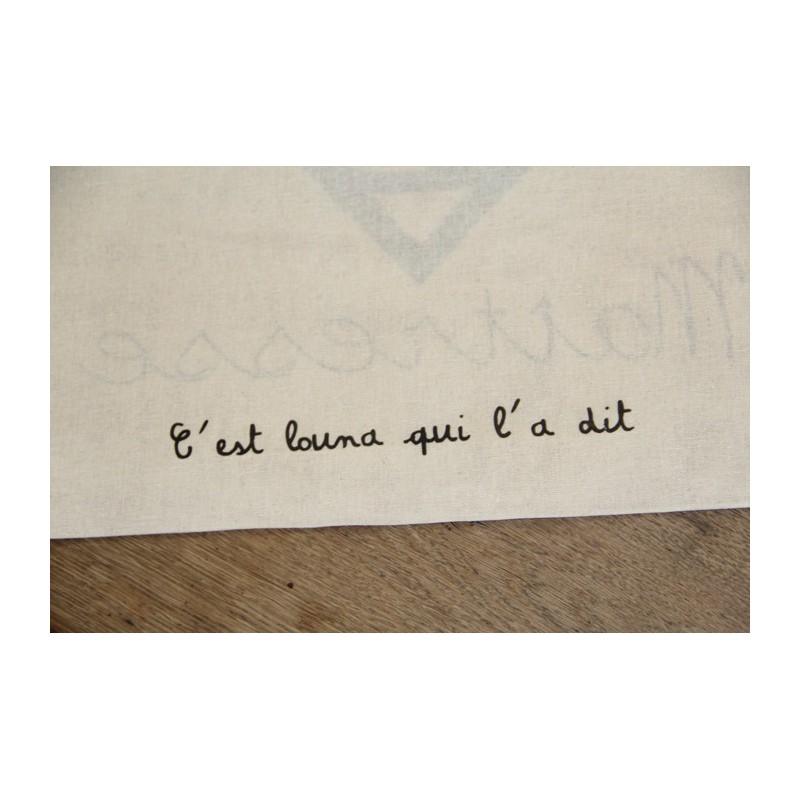 Maîtresse
C'est louna qui l'a dit